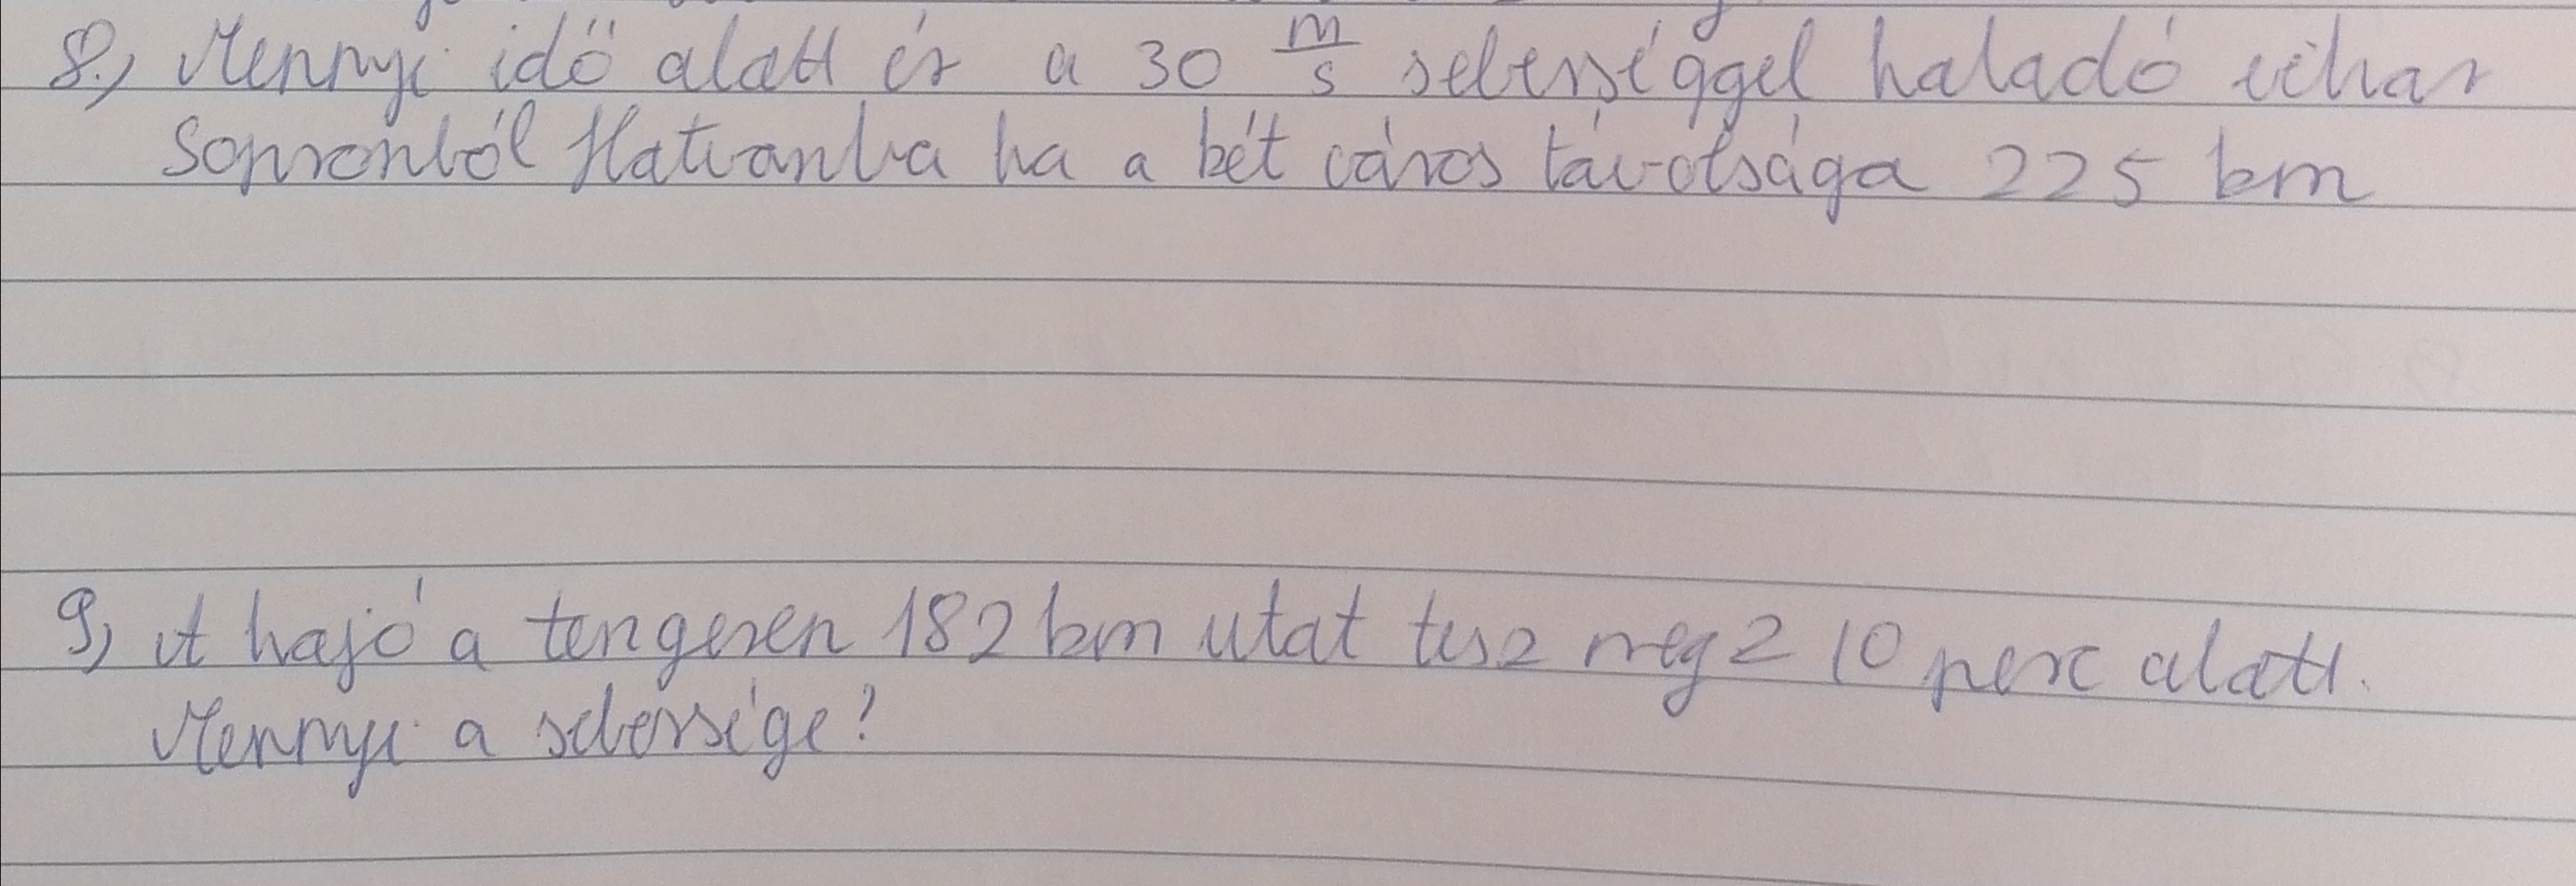 8., Mennyi idő alatt ér a 30 m/s sebességgel haladó vihar
Sopronból Hatvanba ha a két város távolsága 225 km
9, A hajó a tengeren 182 km utat tesz meg 210 perc alatt.
Mennyi a sebessége?